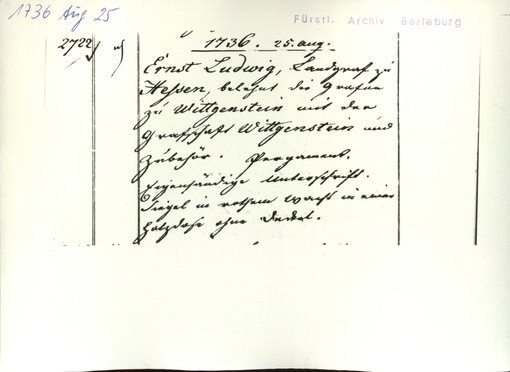 1736 Aug 25
Fürstl. Archiv Berleburg
2722 1736. 25. aug.
Ernst Ludwig, Landgraf zu
Hessen, belehnt die Grafen
zu Wittgenstein mit der
Grafschaft Wittgenstein und
Zubehör. Pergament.
Eigenhändige Unterschrift.
Siegel in rothem Wachs in einer
Holzdose ohne Deckel.